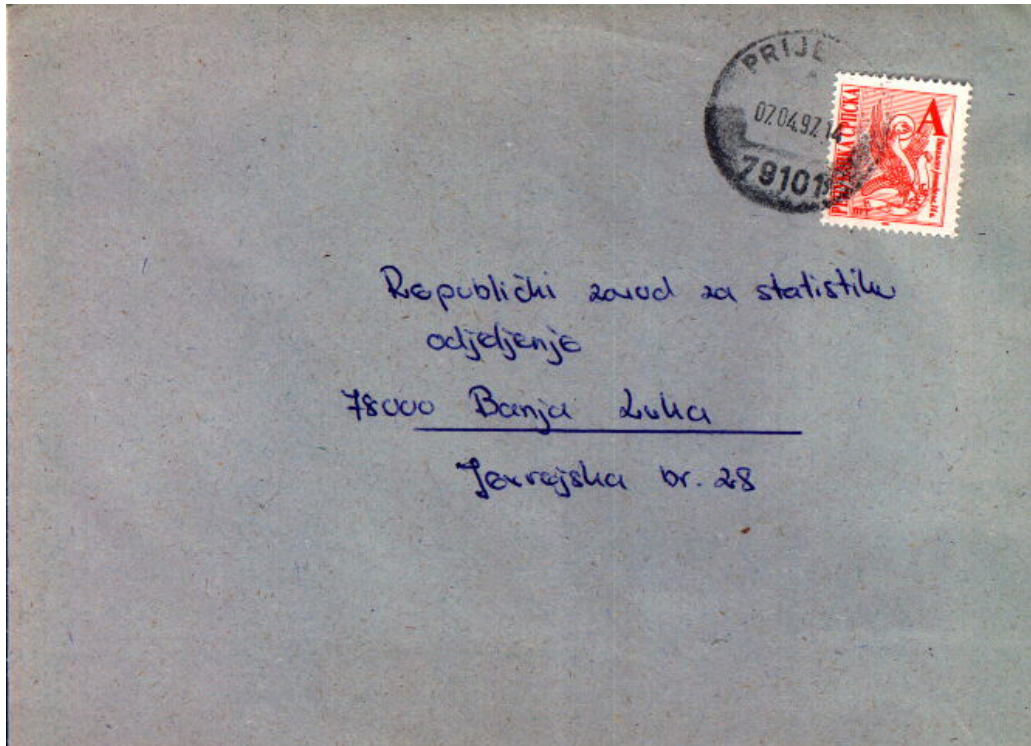 PRIJE
07.04.97.14
79101
РЕПУБЛИКА СРПСКА
A
Republički zavod za statistiku
odjeljenje
78000 Banja Luka
Jevrejska br. 28